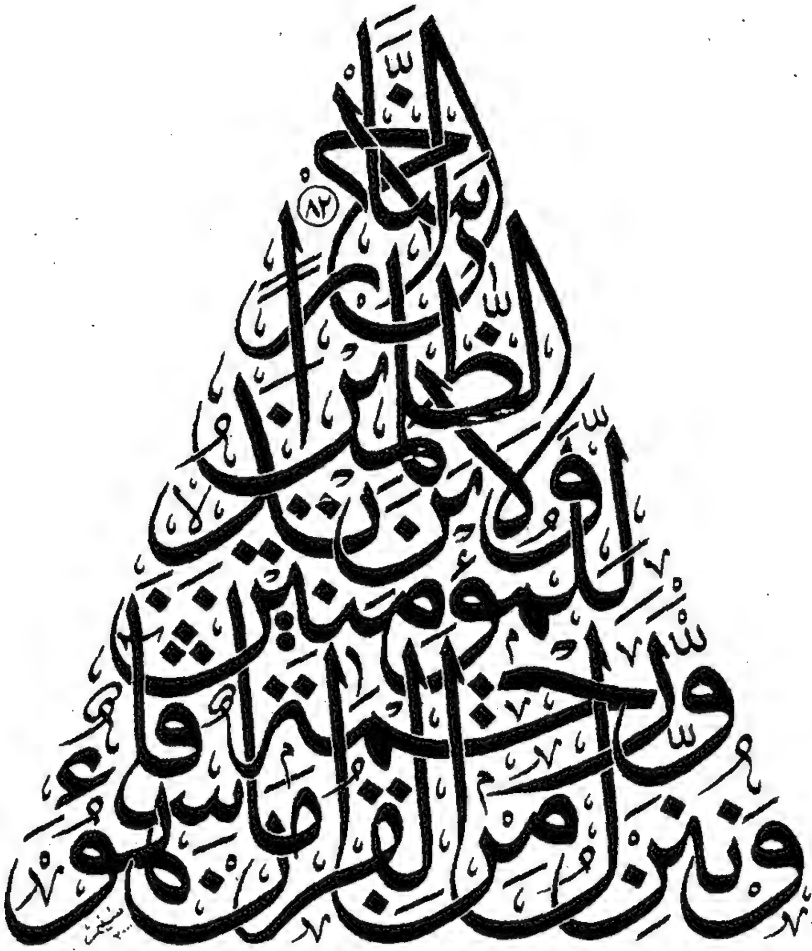 وَنُنَزِّلُ مِنَ الْقُرْءَانِ مَا هُوَ شِفَآءٌ
وَّرَحْمَةٌ
لِّلْمُؤْمِنِيْنَ
وَلَا يَزِيْدُ
الظّٰلِمِيْنَ
اِلَّا خَسَارًا
٨٢